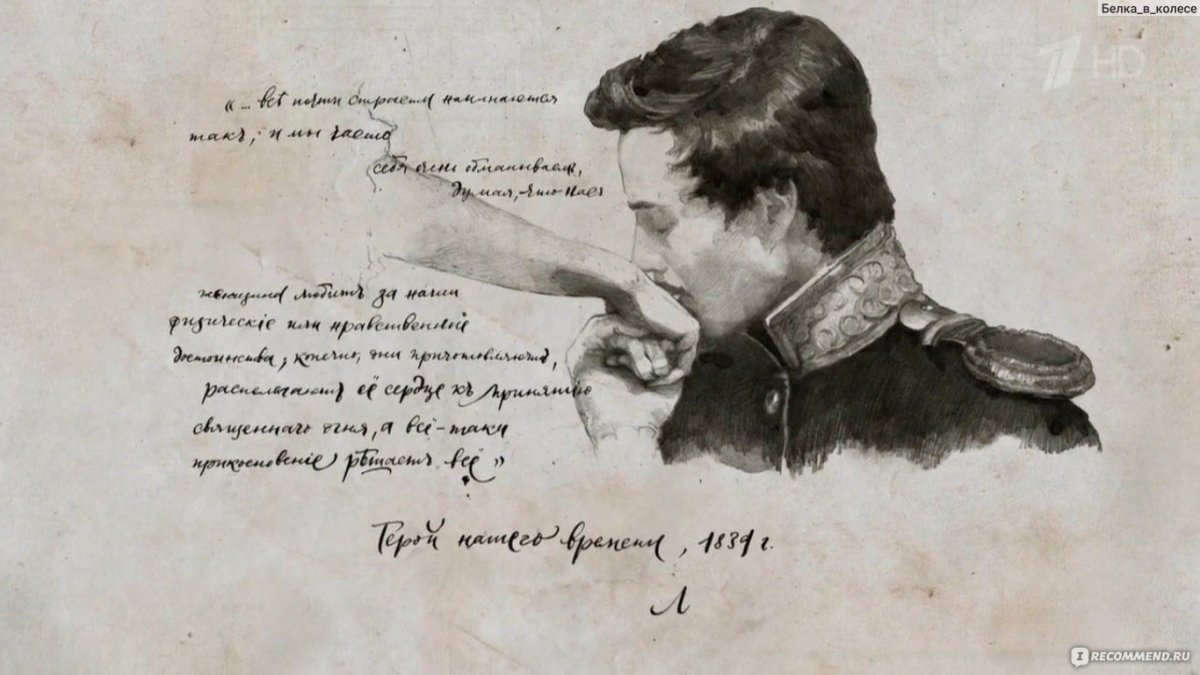 Белка_в_колесе
1 HD
«... всѣ почти страсти начинаются
такъ, и мы часто
себя очень обманываемъ,
думая, что насъ
женщина любитъ за наши
физическіе или нравственныіе
достоинства; конечно, они приготовляютъ,
располагаютъ её сердце къ принятію
священнаго огня, а всё-таки
прикосновеніе рѣшаетъ всё»
Герой нашего времени, 1839 г.
Л
IRECOMMEND.RU